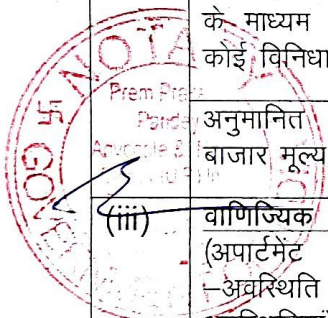 के माध्यम
कोई विनिधा
अनुमानित
बाजार मूल्य
(iii) वाणिज्यिक
(अपार्टमेंट
–अवस्थिति
NOTA
Prem Pra
Panday
GOVE